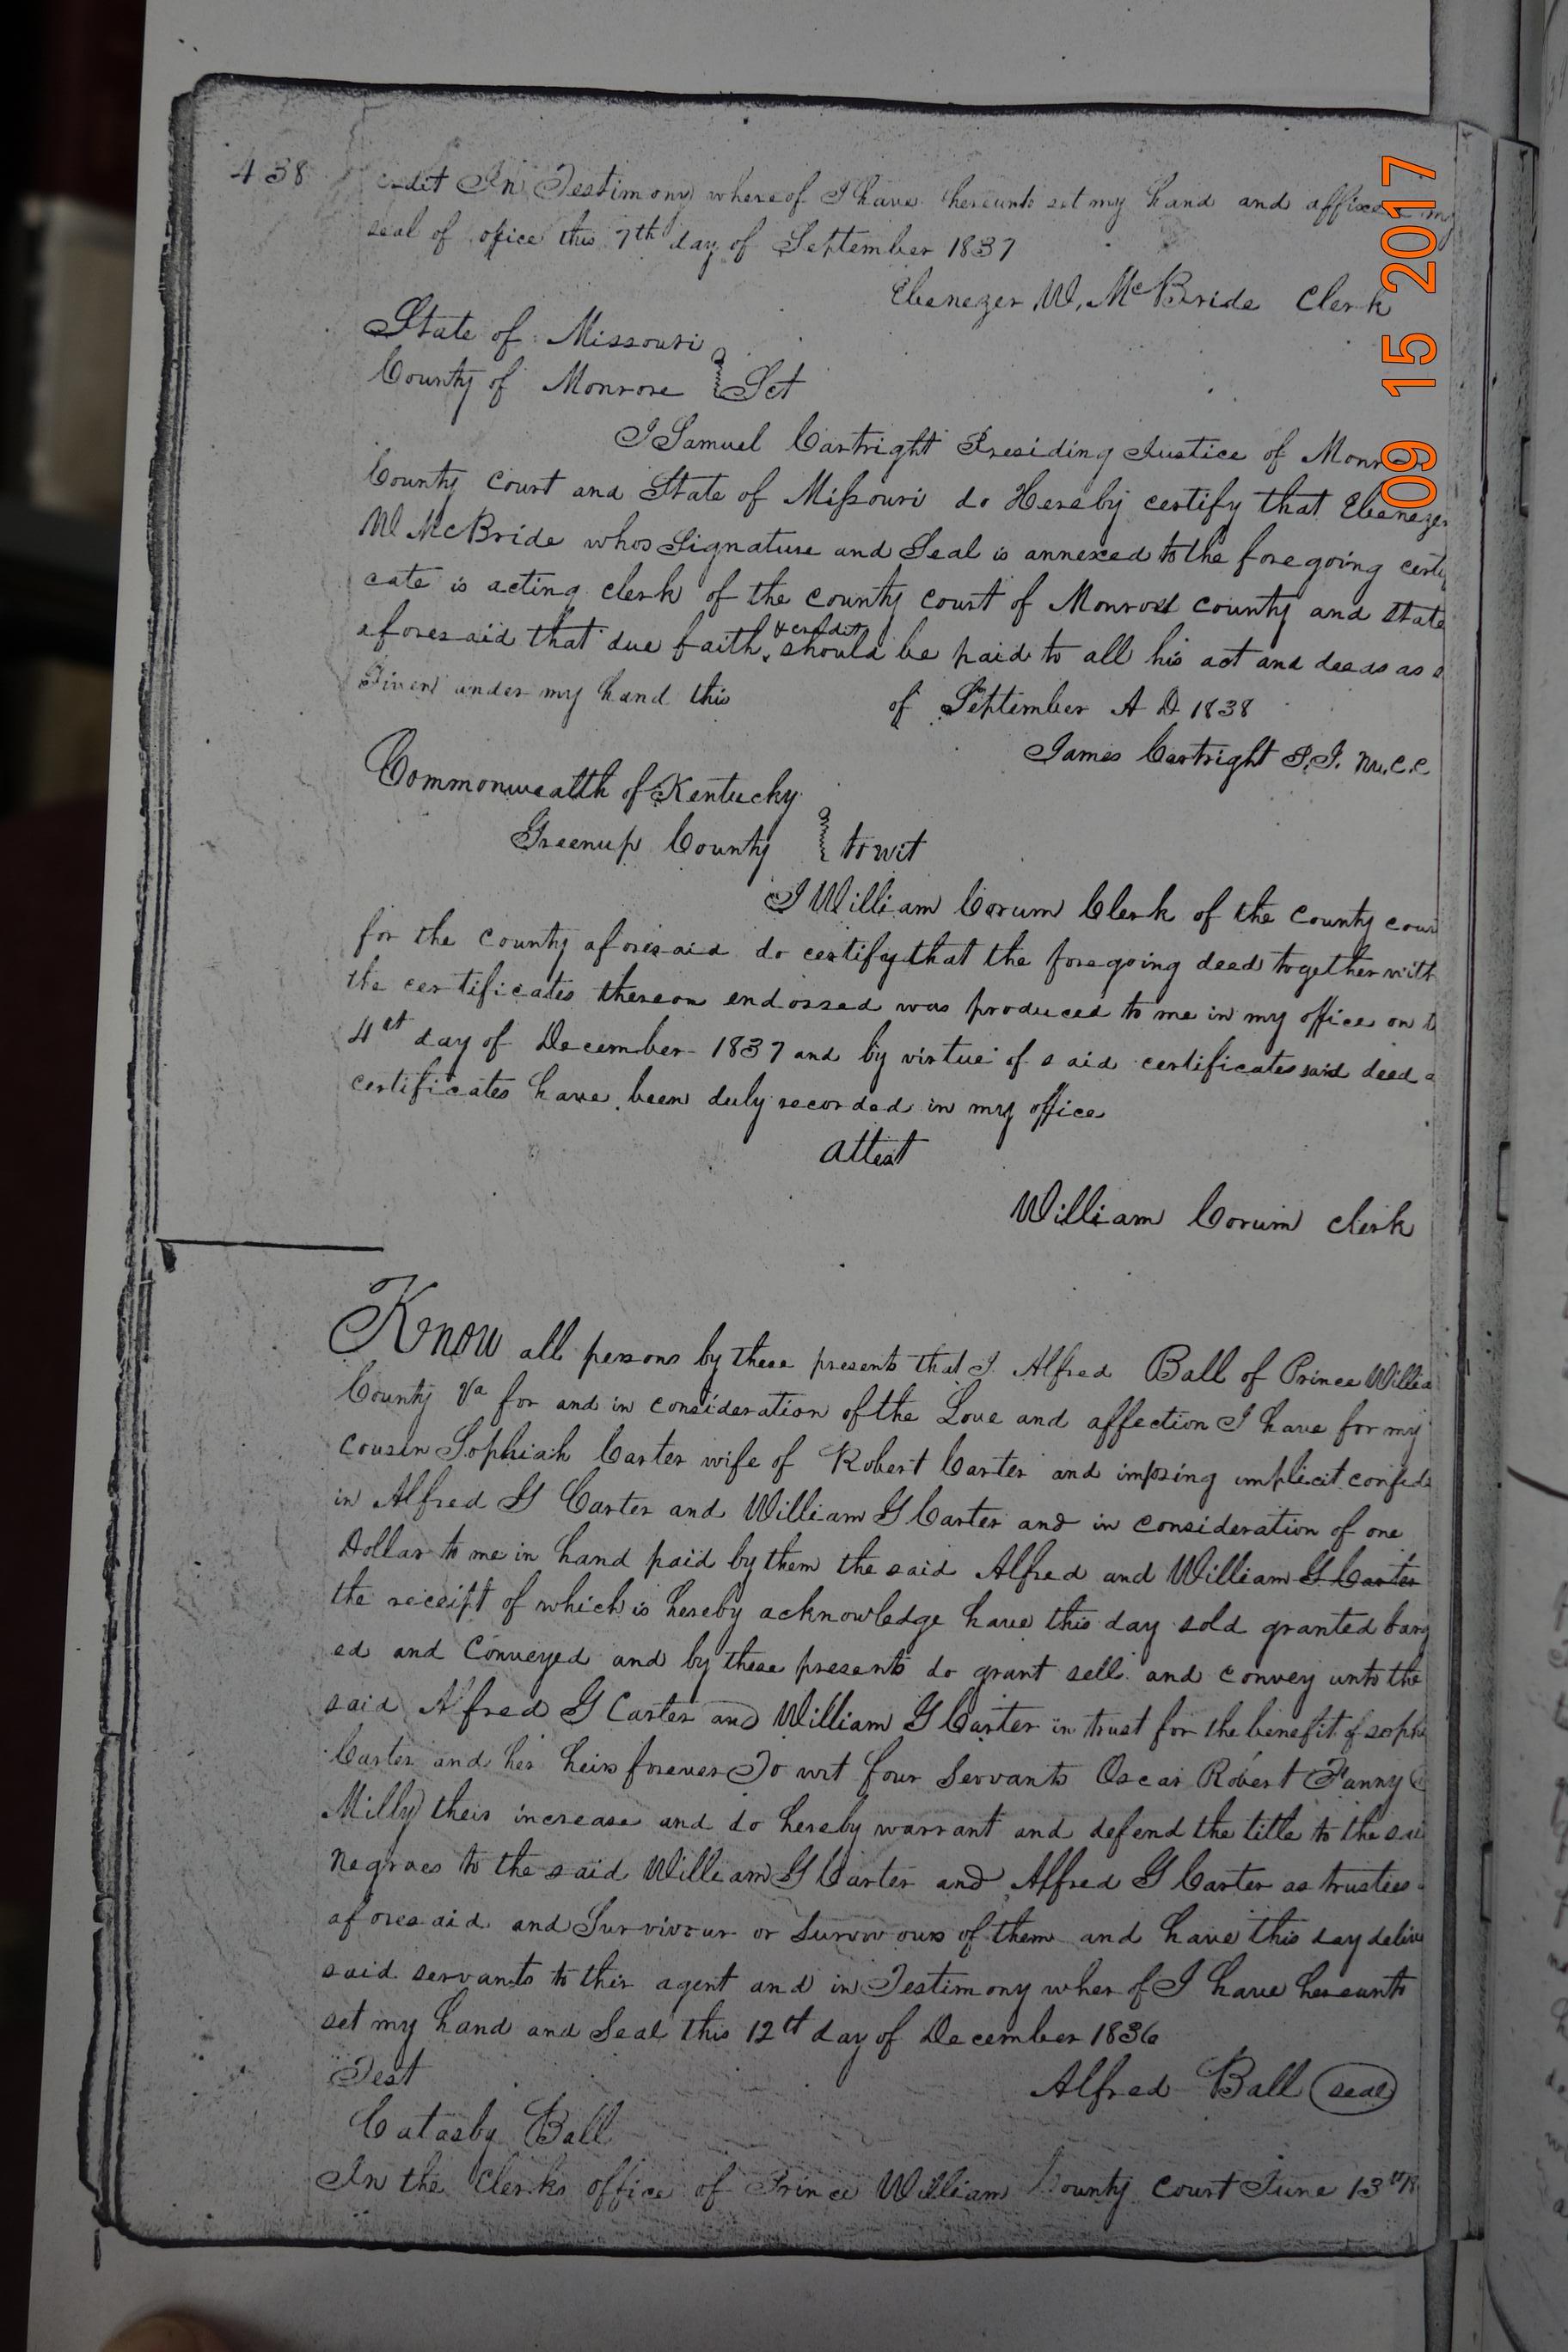 438
credit In Testimony whereof I have hereunto set my hand and affixed my
seal of office this 7th day of September 1837
Ebenezer W. McBride Clerk
State of Missouri
County of Monroe } Sct
I Samuel Cartright Presiding Justice of Monr
County Court and State of Missouri do Hereby certify that Ebenezer
W McBride whos Signature and Seal is annexed to the foregoing certi
cate is acting clerk of the county court of Monroe county and state
aforesaid that due faith & credit should be paid to all his act and deeds as s
Given under my hand this of September A D 1838
James Cartright P.J. M.C.C
Commonwealth of Kentucky
Greenup County } towit
I William Corum Clerk of the county cour
for the county aforesaid do certify that the foregoing deed together with
the certificates thereon endossed was produced to me in my office on t
4th day of December 1837 and by virtue of said certificates said deed a
certificates have been duly recorded in my office
Attest
William Corum clerk
Know all persons by these presents that I Alfred Ball of Prince Willia
County Va for and in consideration of the Love and affection I have for my
cousin Sophiah Carter wife of Robert Carter and imposing implicit confid
in Alfred G Carter and William G Carter and in consideration of one
Dollar to me in hand paid by them the said Alfred and William G Carter
the receipt of which is hereby acknowledge have this day sold granted barg
ed and Conveyed and by these presents do grant sell and convey unto the
said Alfred G Carter and William G Carter in trust for the benefit of soph
Carter and her heirs forever To wit four Servants Oscar Robert Fanny
Milly their increase and do hereby warrant and defend the title to the sai
negroes to the said William G Carter and Alfred G Carter as trustees
aforesaid and Survivour or Survivours of them and have this day deliv
said servants to thir agent and in Testimony wherof I have hereunto
set my hand and Seal this 12th day of December 1836
Test
Alfred Ball (seal)
Catasby Ball
In the Clerks office of Prince William County Court June 13th
09 15 2017